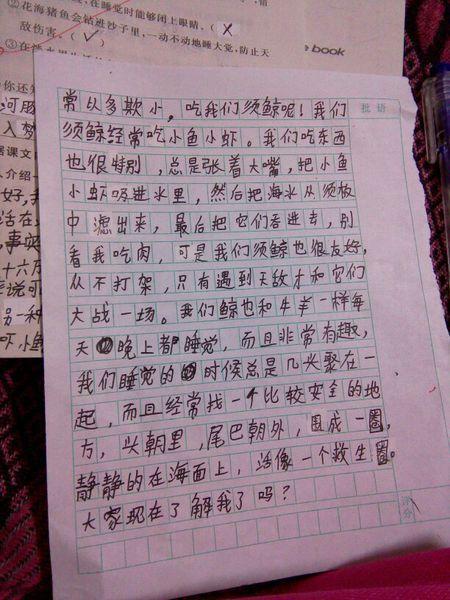 ②花海猪鱼会钻进沙子里,在睡觉时能够闭上眼睛,(×)
敌伤害。(√)一动不动地睡大觉,防止天
book
批语
常以多欺小,吃我们须鲸呢!我们
须鲸经常吃小鱼小虾。我们吃东西
也很特别,总是张着大嘴,把小鱼
小虾吸进水里,然后把海水从须板
中滤出来,最后把它们吞进去,别
看我吃肉,可是我们须鲸也很友好,
从不打架,只有遇到天敌才和它们
大战一场。我们鲸也和牛羊一样每
天晚上都睡觉,而且非常有趣,
我们睡觉的时候总是几头聚在一
起,而且经常找一个比较安全的地
方,头朝里,尾巴朝外,围成一圈,
静静的在海面上,活像一个救生圈。
大家现在了解我了吗?